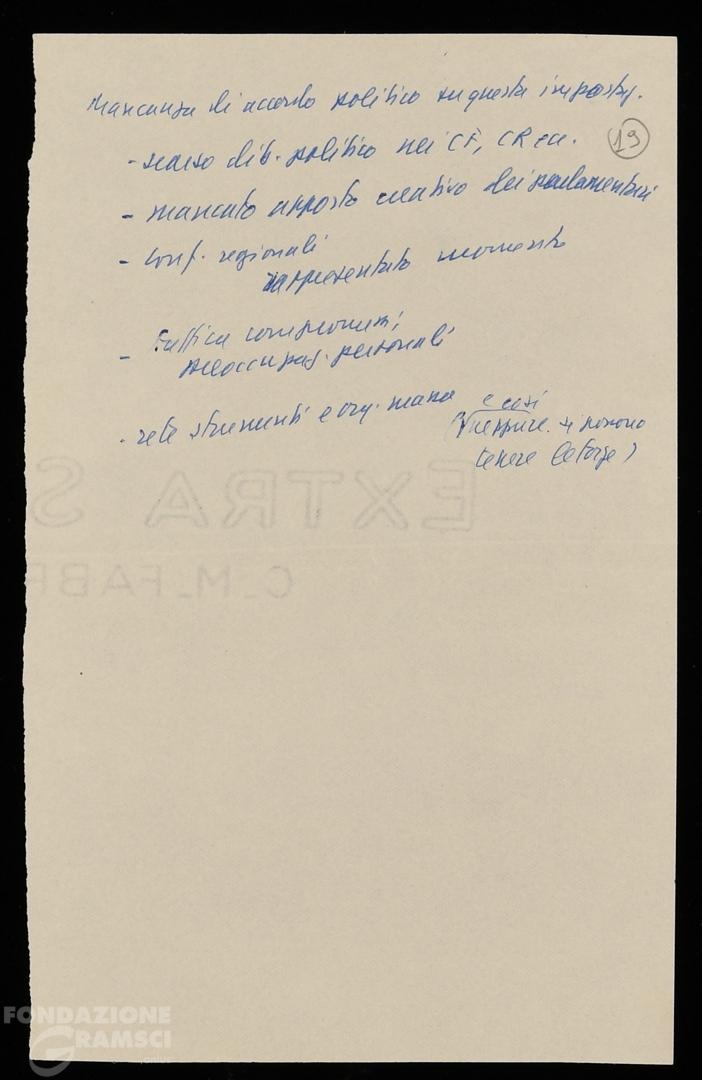 Mancanza di accordo politico su questa impostaz.
19
- scarso dib. politico nei CF, CR ecc.
- mancato apporto creativo dei parlamentari
- conf. regionali
rappresentato momento
- Tattica compromessi,
preoccupaz. personali
- rete strumenti e org. massa
e così
neppure si possono
tenere le forze)
EXTRA S
C_M_FABR
FONDAZIONE
GRAMSCI
onlus